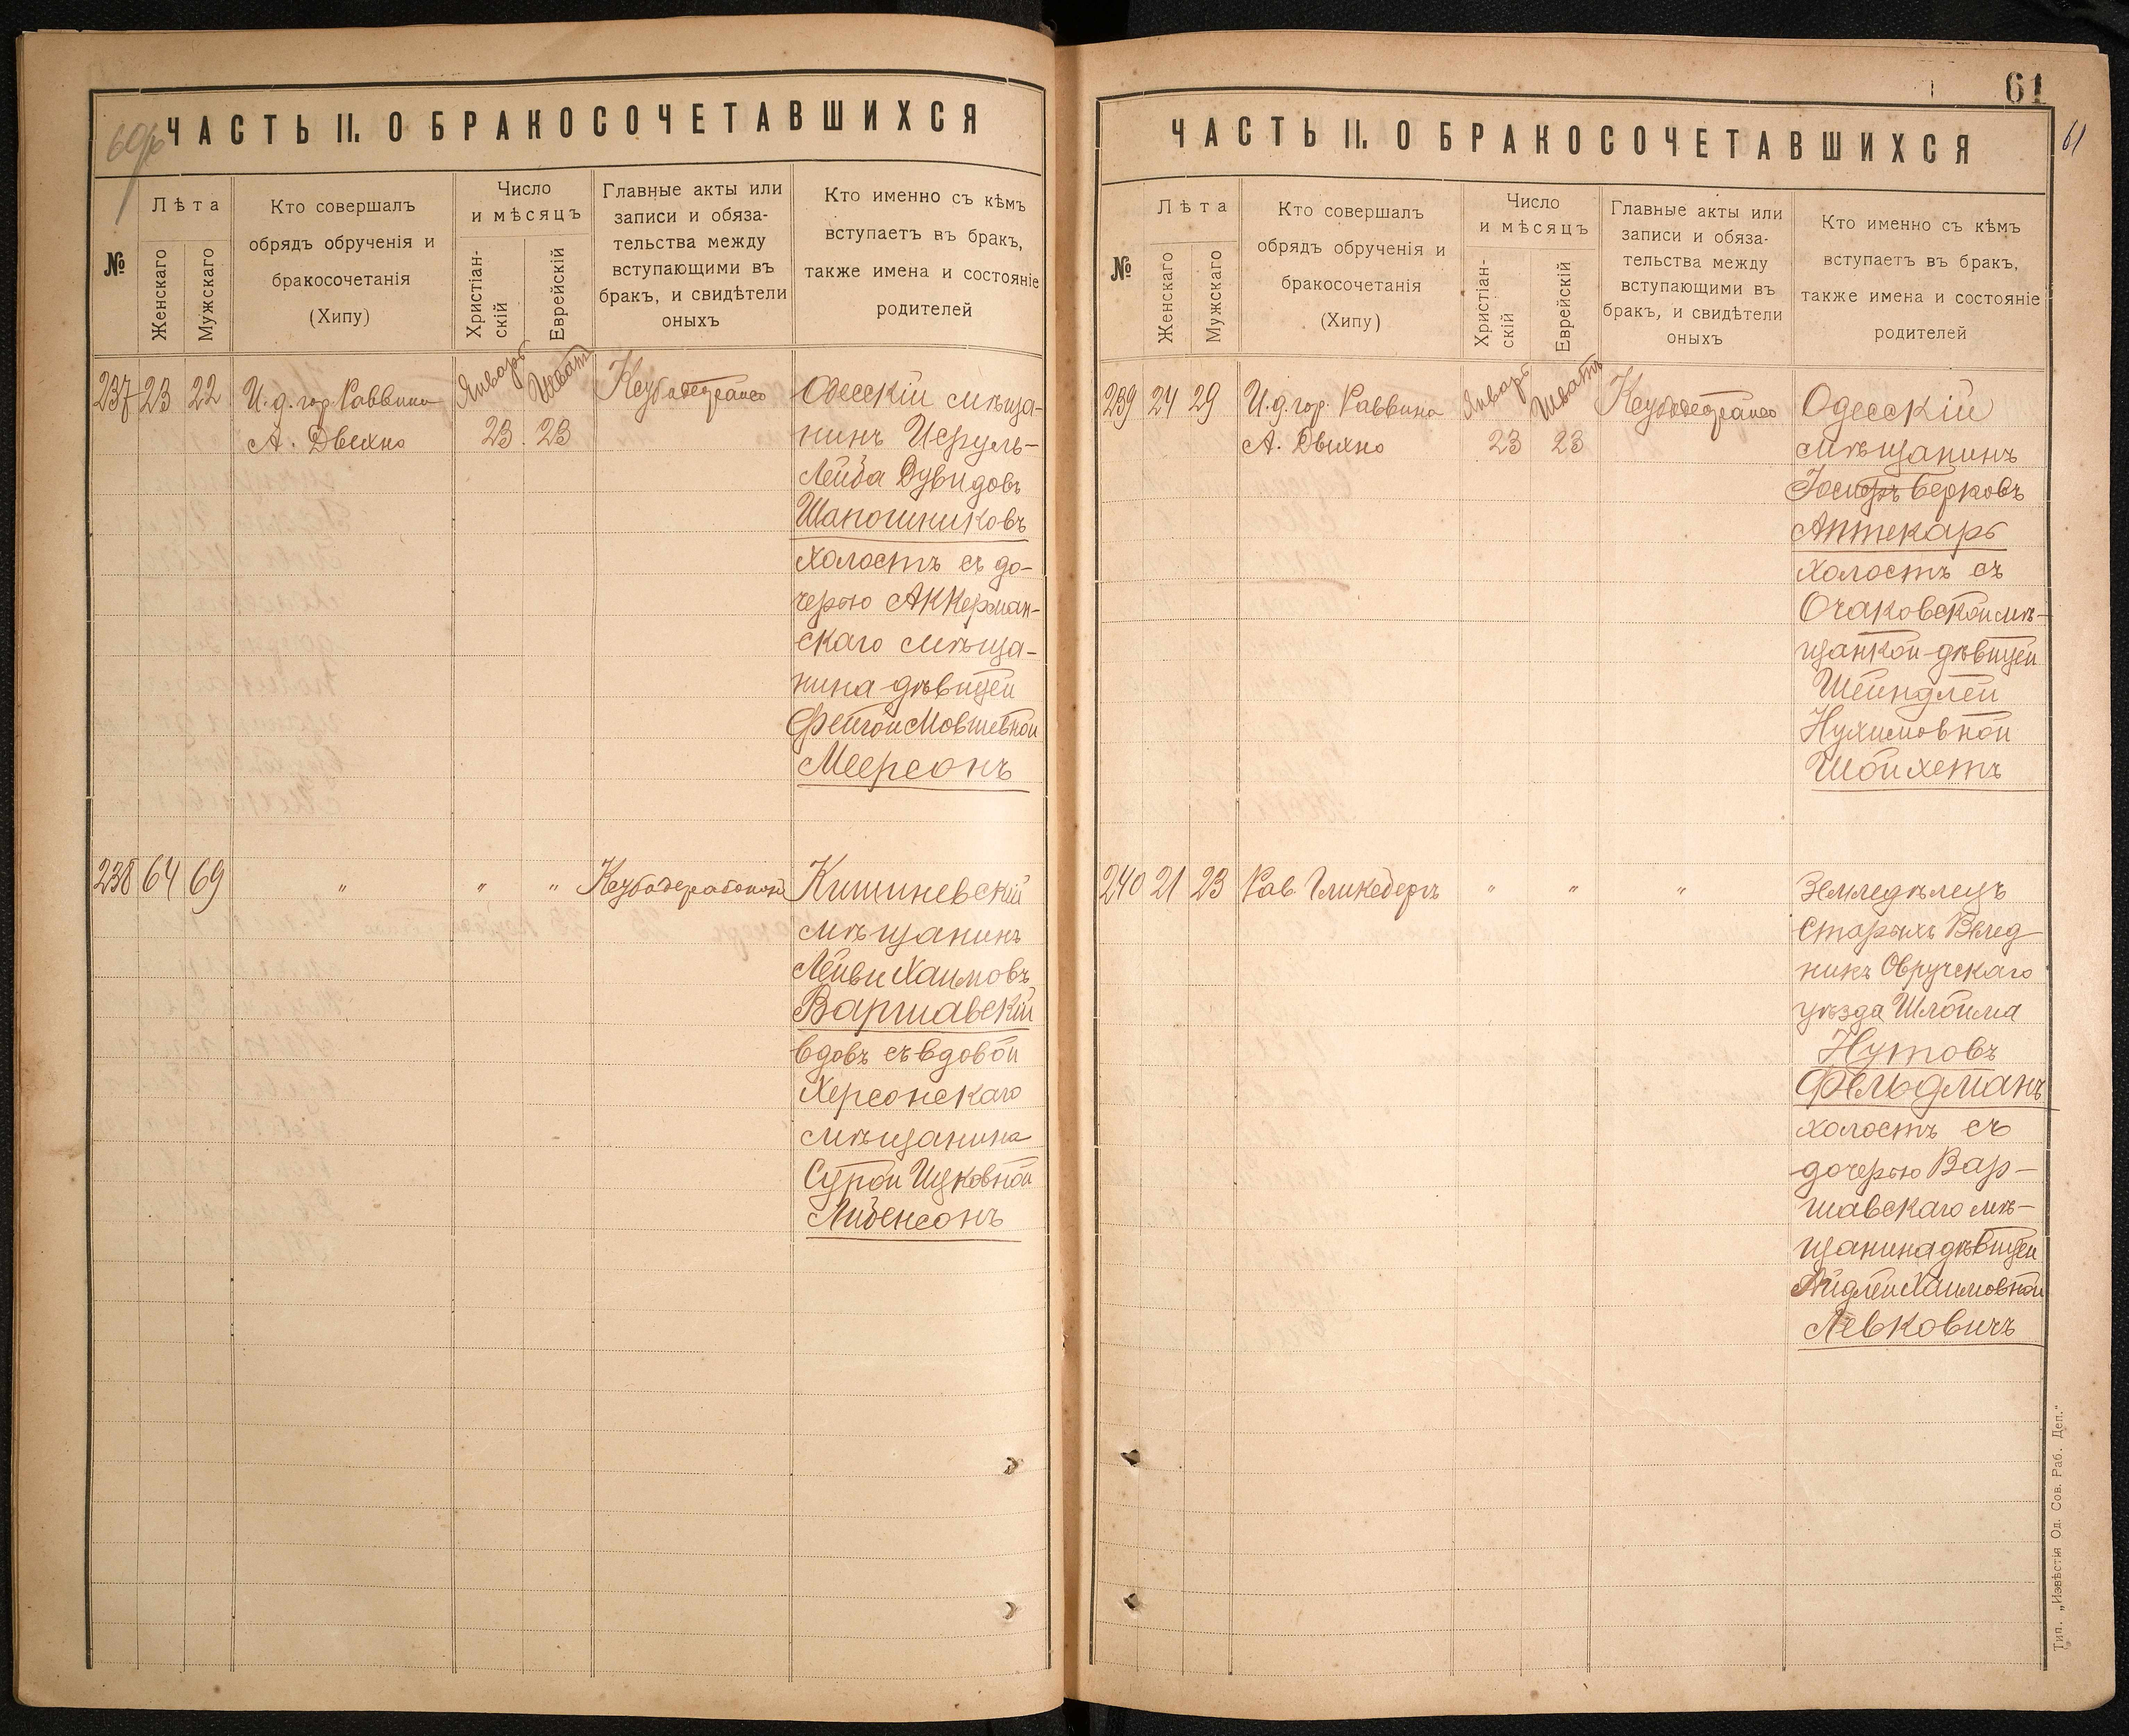 60об
ЧАСТЬ II. О БРАКОСОЧЕТАВШИХСЯ
№
Лѣта
Женскаго
Мужскаго
Кто совершалъ
обрядъ обрученія и
бракосочетанія
(Хипу)
Число
и мѣсяцъ
Христіан-
скій
Еврейскій
Главные акты или
записи и обяза-
тельства между
вступающими въ
бракъ, и свидѣтели
оныхъ
Кто именно съ кѣмъ
вступаетъ въ бракъ,
также имена и состояніе
родителей
237 23 22 И.д. гор. Раввина Январь Шватъ
А. Двихно 23 23
Одесскій мѣща-
нинъ Исруль-
Лейба Дувидовъ
Шапошниковъ
холостъ съ до-
черью Аккерман-
скаго мѣща-
нина дѣвицей
Фейгой Мовшевной
Меерсонъ
238 64 69 " " "
Кишиневскій
мѣщанинъ
Лейви Хаимовъ
Варшавскій
вдовъ съ вдовой
Херсонскаго
мѣщанина
Сурой Ицковной
Либенсонъ
61
61
ЧАСТЬ II. О БРАКОСОЧЕТАВШИХСЯ
№
Лѣта
Женскаго
Мужскаго
Кто совершалъ
обрядъ обрученія и
бракосочетанія
(Хипу)
Число
и мѣсяцъ
Христіан-
скій
Еврейскій
Главные акты или
записи и обяза-
тельства между
вступающими въ
бракъ, и свидѣтели
оныхъ
Кто именно съ кѣмъ
вступаетъ въ бракъ,
также имена и состояніе
родителей
239 24 29 И.д. гор. Раввина Январь Шватъ
А. Двихно 23 23
Одесскій
мѣщанинъ
Іосифъ Берковъ
Аптекарь
холостъ съ
Очаковской мѣ-
щанкой дѣвицей
Шейндлей
Нухимовной
Шойхетъ
240 21 23 Рав. Гликсбергъ " " "
Земледѣлецъ
Старыхъ Велед-
никъ Овручскаго
уѣзда Шлойма
Нутовъ
Фельдманъ
холостъ съ
дочерью Вар-
шавскаго мѣ-
щанина дѣвицей
Хаимовной
Левковичъ
Тип. „Извѣстія Од. Сов. Раб. Деп."